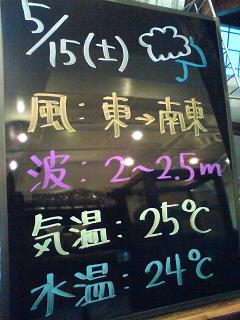 5/15(土)
風:東→南東
波:2~2.5m
気温:25℃
水温:24℃